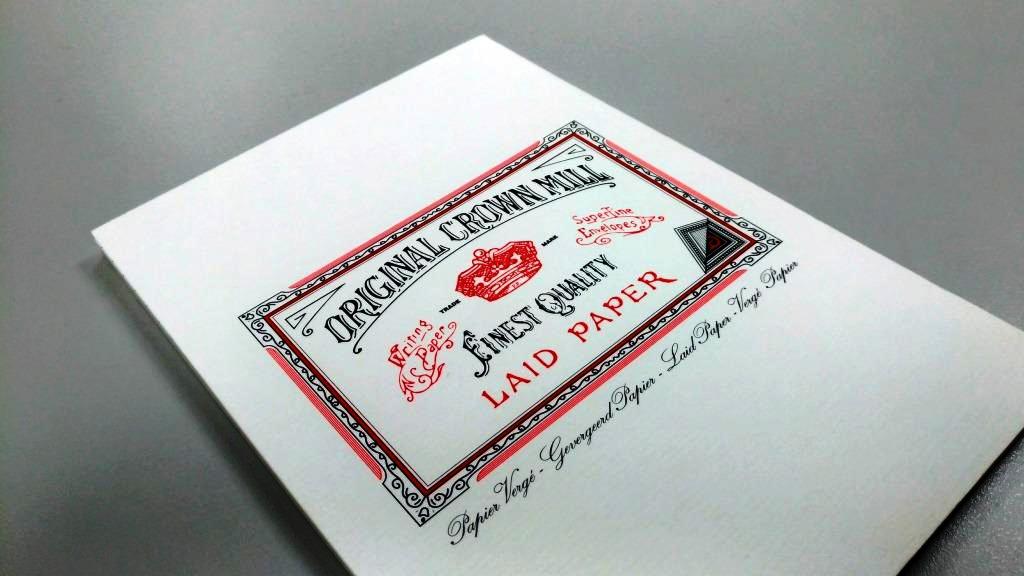 ORIGINAL CROWN MILL
TRADE MARK
Writing Paper
Superfine Envelopes
FINEST QUALITY
LAID PAPER
Papier Vergé - Gevergeerd Papier - Laid Paper - Vergé Papier